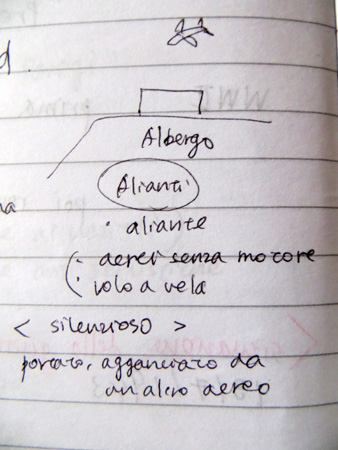 d.
Albergo
Alianti
· aliante
· aerei senza motore
· volo a vela
na
< silenzioso >
portato, agganciato da
un altro aereo